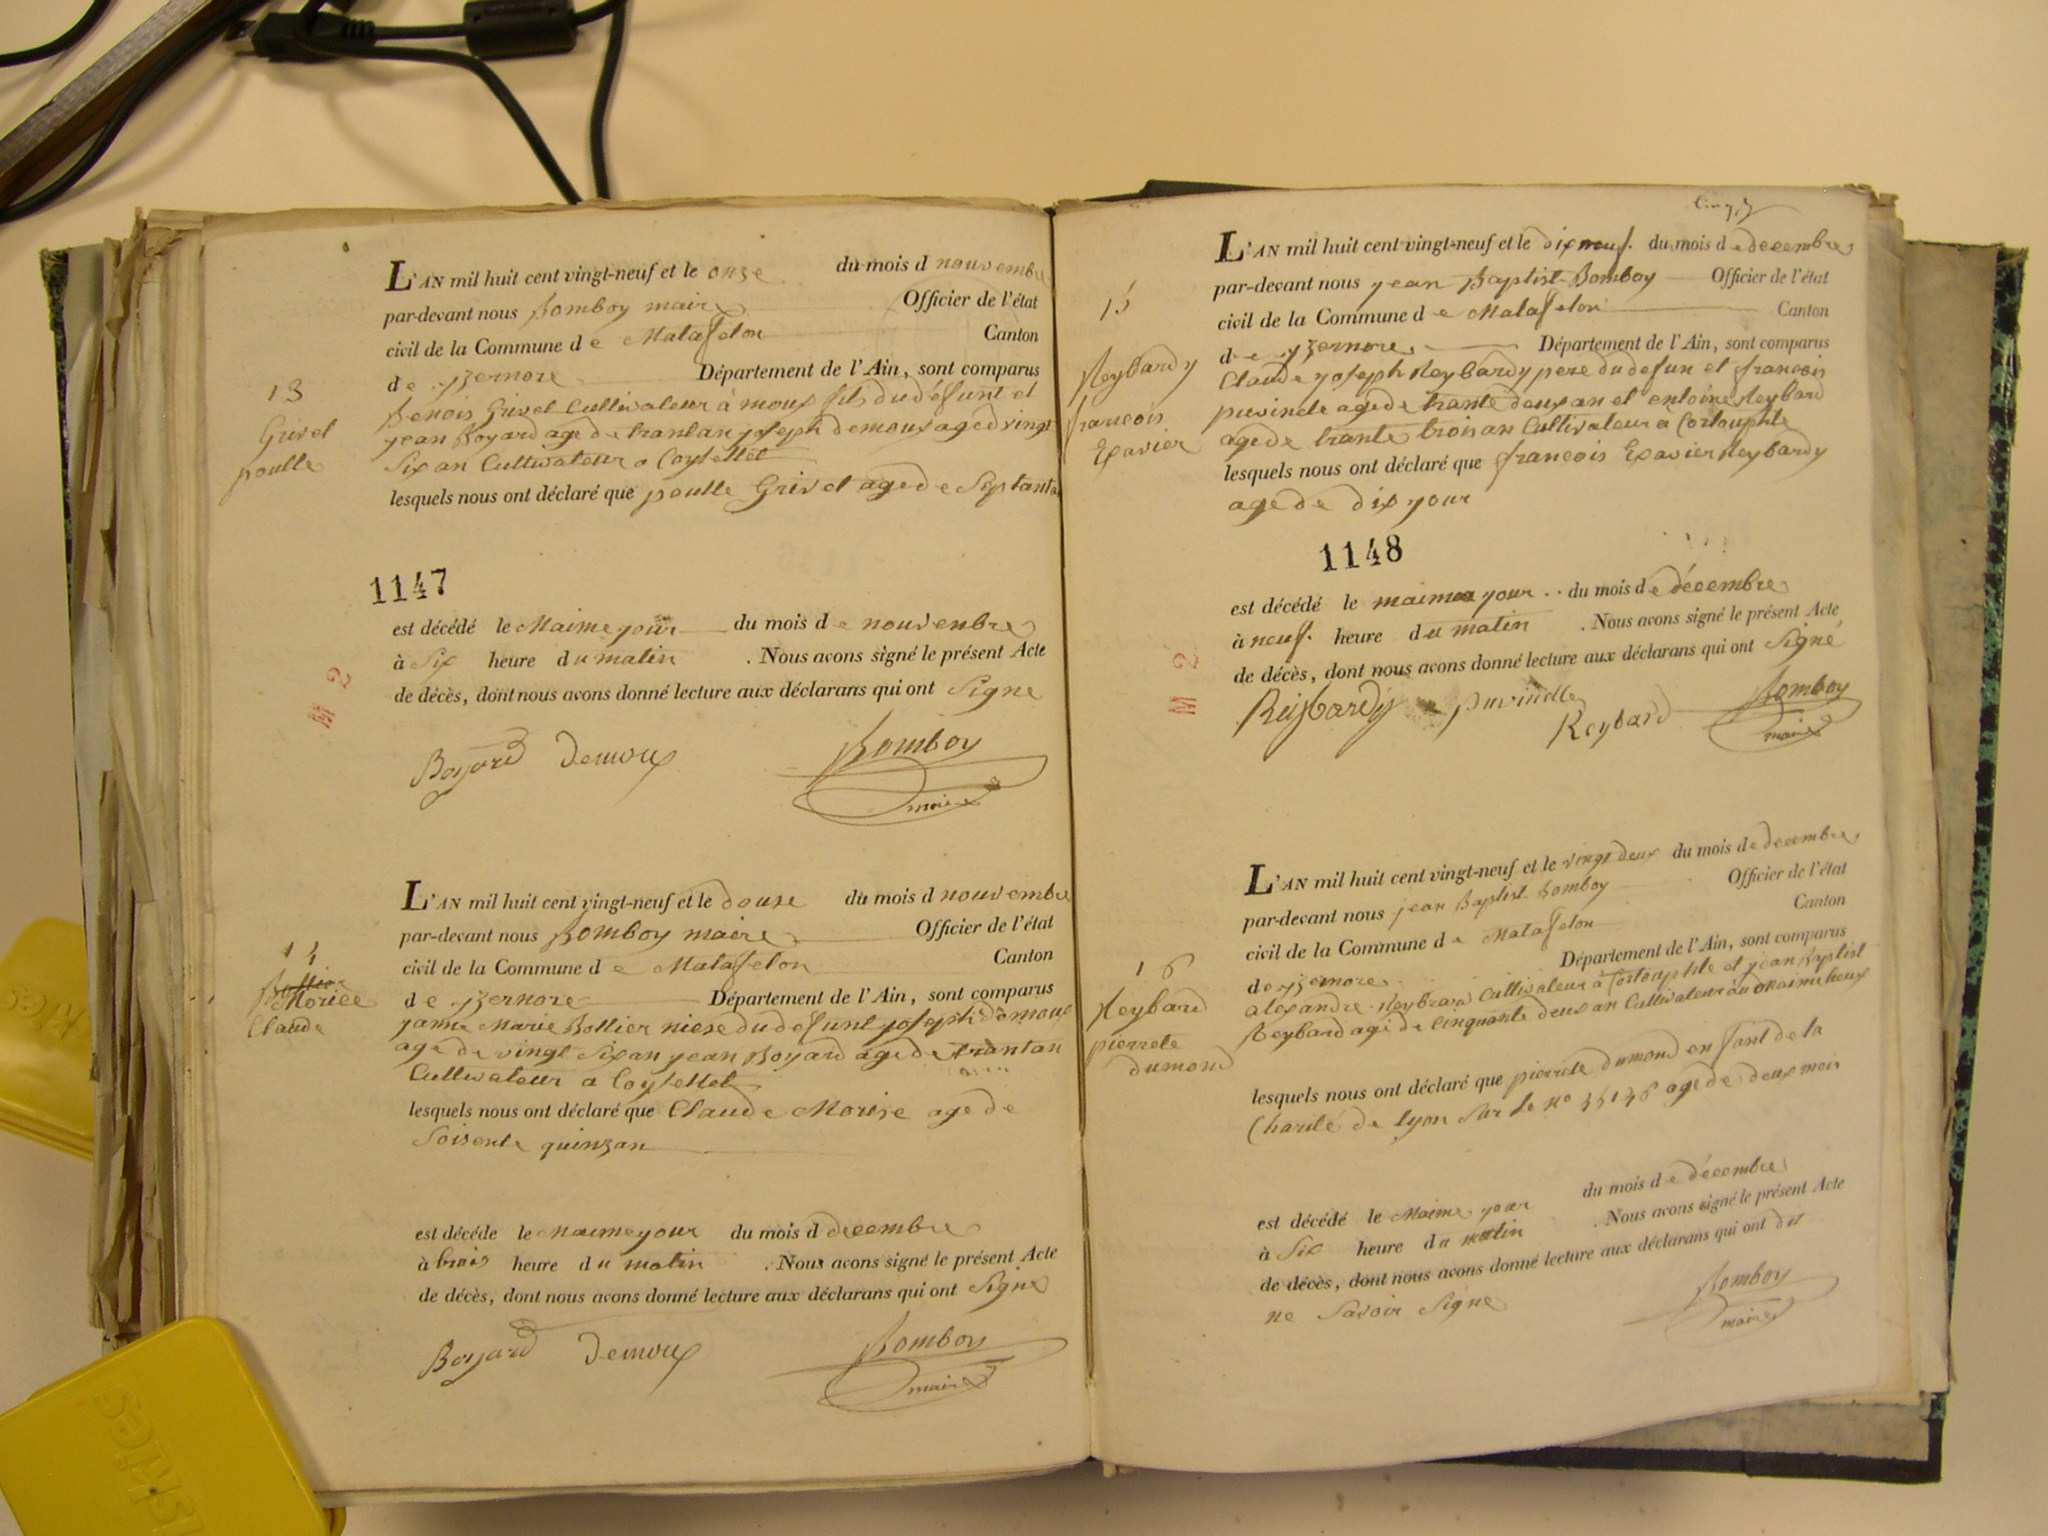 L'AN mil huit cent vingt-neuf et le onze du mois d nouvembre
par-devant nous Bomboy maire Officier de l'état
civil de la Commune d e Matafelon Canton
d e yzernore Département de l'Ain, sont comparus
13
Grivel
poulle
Benois Grivel Cultivateur à moux fils du défunt et
jean Boyard age de trantan joseph demoux aged vingt
Six an Cultivateur a Coysellet
lesquels nous ont déclaré que poulle Grivel age de Septanta
1147
est décédé le Maime your du mois d e nouvenbre
à Six heure d u matin . Nous avons signé le présent Acte
M 2
de décès, dont nous avons donné lecture aux déclarans qui ont Signe
Boyard Demoux Bomboy
maire
L'AN mil huit cent vingt-neuf et le douze du mois d nouvembre
par-devant nous Bomboy maire Officier de l'état
civil de la Commune d e Matafelon Canton
d e yzernore Département de l'Ain, sont comparus
14
Morice
Claude
janne Marie Bollier niese du défunt joseph demoux
age de vingt Six an jean Boyard age de trantan
Cultivateur a Coysellet
lesquels nous ont déclaré que Claude Morise age de
Soisente quinzan
est décédé le Maime your du mois d decembre
à trais heure d u matin . Nous avons signé le présent Acte
de décès, dont nous avons donné lecture aux déclarans qui ont Signe
Boyard Demoux Bomboy
maire
L'AN mil huit cent vingt-neuf et le dix neuf du mois d e decembre
par-devant nous jean Baptist Bomboy Officier de l'état
civil de la Commune d e Matafelon Canton
d e yzernore Département de l'Ain, sont comparus
15
Reybardy
francois
Exavier
Claude yoseph Reybardy pere du defun et francois
puvinele age de trante deux an et entoine Reybard
age de trante trois an Cultivateur à Cortouphle
lesquels nous ont déclaré que francois Exavier Reybardy
age de dix your
1148
est décédé le maime your du mois d e décembre
à neuf heure d u matin . Nous avons signé le présent Acte
M 2
de décès, dont nous avons donné lecture aux déclarans qui ont Signé
Reybardy puvinelle Reybard Bomboy
maire
L'AN mil huit cent vingt-neuf et le vingt deux du mois d e decembre
par-devant nous jean Baptist Bomboy Officier de l'état
civil de la Commune d e Matafelon Canton
d e yzernore Département de l'Ain, sont comparus
16
Reybard
pierrete
dumond
alexandre Reybrard Cultivateur à Cortouphle et jean Baptist
Reybard agé de Cinquante deux an Cultivateur au maime lieux
lesquels nous ont déclaré que pierrete dumond enfant de la
Charité de Lyon Sur le n° age de deux mois
est décédé le Maime your du mois d e décembre
à Six heure d u matin . Nous avons signé le présent Acte
de décès, dont nous avons donné lecture aux déclarans qui ont dit
ne Savoir Signe Bomboy
maire